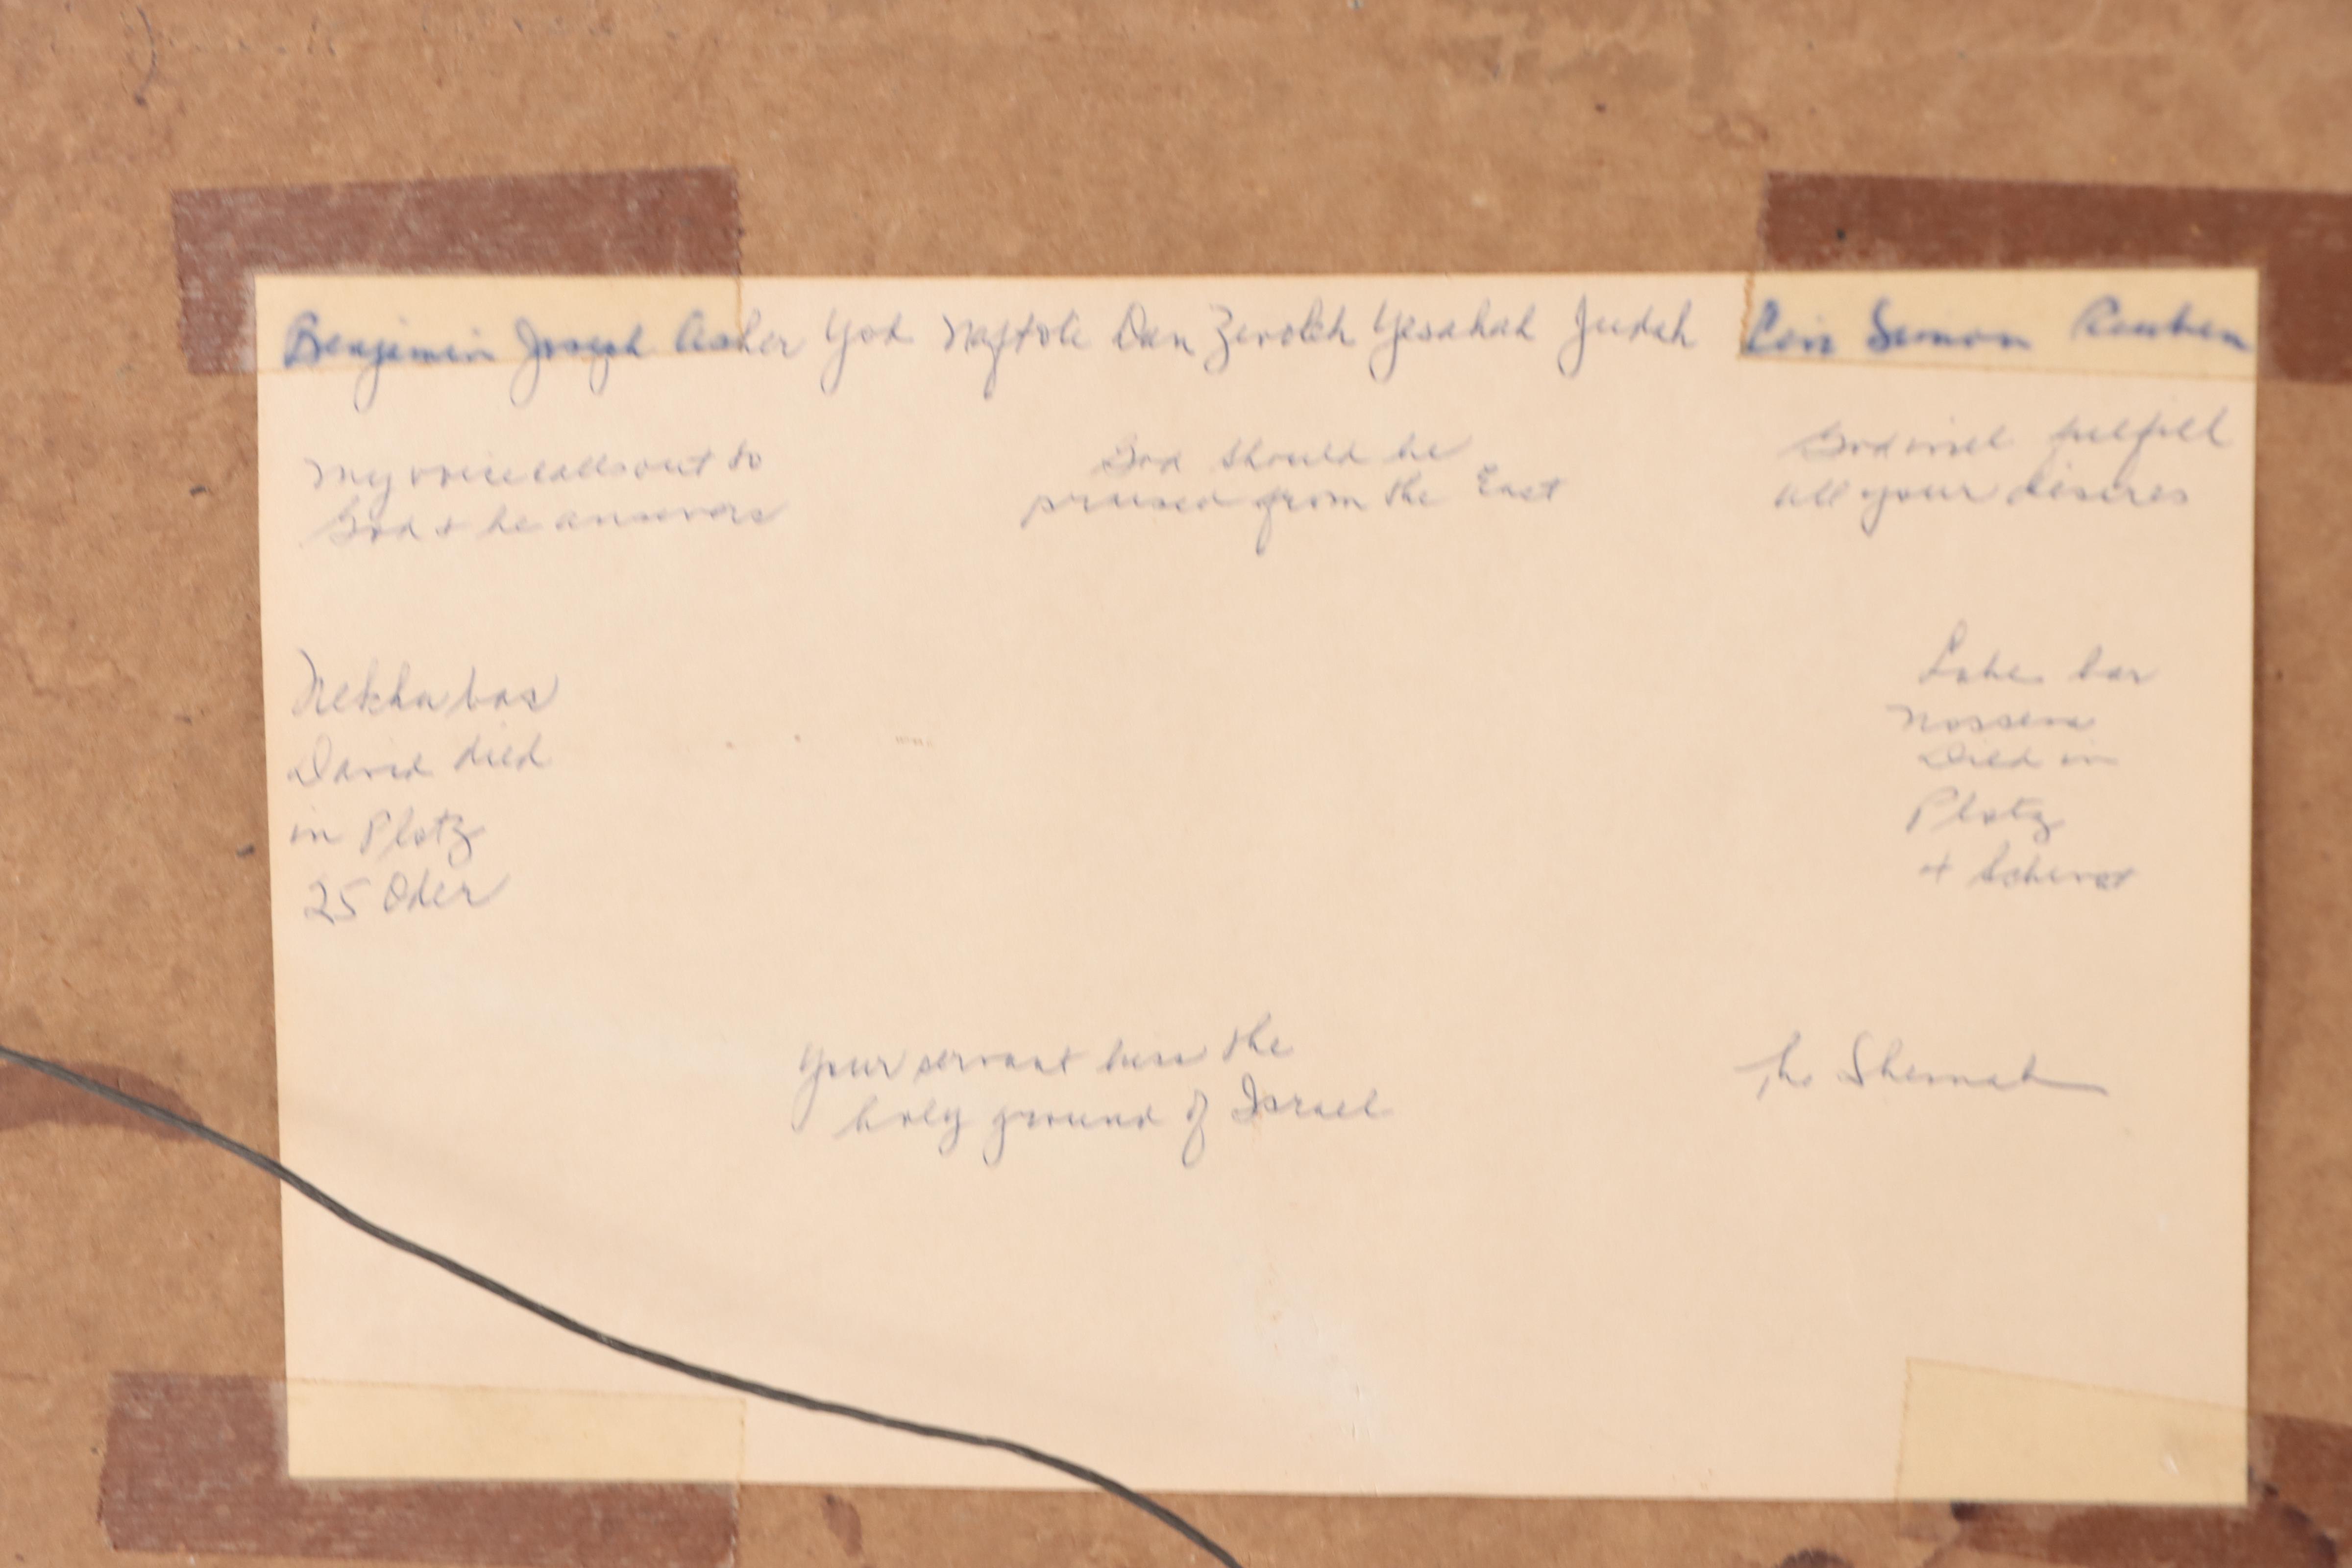 Benjamin Joseph Asher God Naftole Dan Zevolch Yesahah Judah Simon Reuben
My voice calls out to
God & he answers
God should be
praised from the East
God will fulfill
all your desires
Nekha bas
David died
in Plotz
25 Oder
bar
Nossen
Died in
Plotz
Your servant the
holy ground of Israel
The